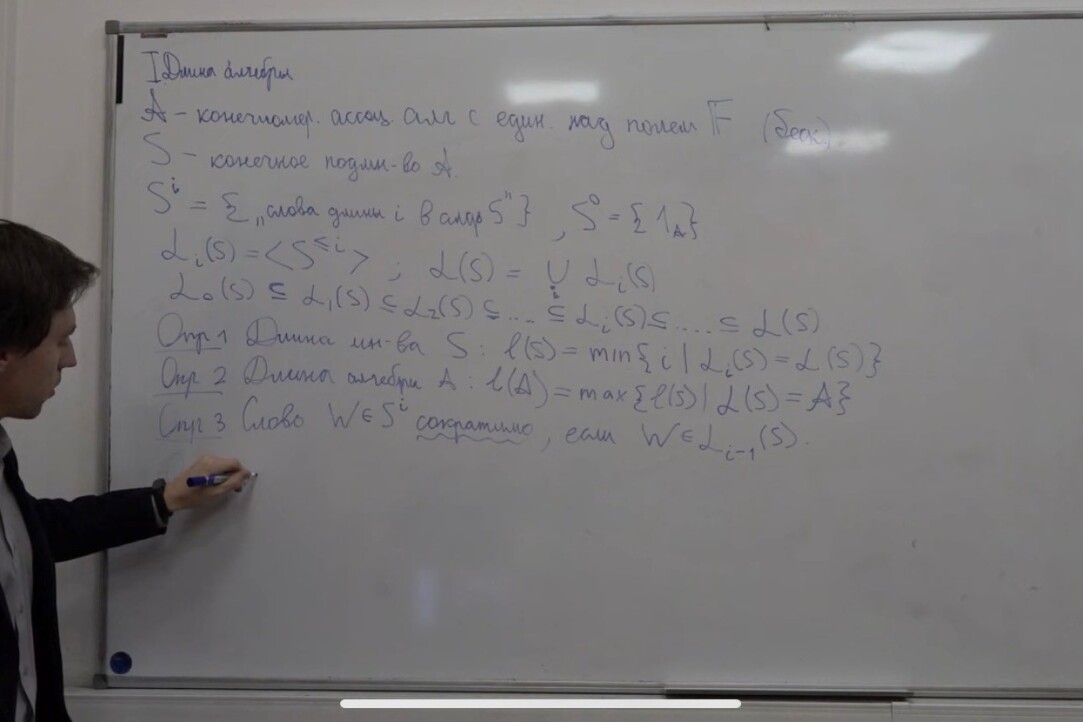 I Длина алгебры
A – конечномер. ассоц. алг с един. над полем 𝔽 (беск).
S – конечное подмн-во A.
Sⁱ = {„слова длины i в алф S"}, S⁰ = {1_A}
ℒ_i(S) = <S^{≤i}> ; ℒ(S) = ∪_i ℒ_i(S)
ℒ_0(S) ⊆ ℒ_1(S) ⊆ ℒ_2(S) ⊆ ... ⊆ ℒ_i(S) ⊆ .... ⊆ ℒ(S)
Опр 1 Длина мн-ва S: l(S) = min{i | ℒ_i(S) = ℒ(S)}
Опр 2 Длина алгебры A: l(A) = max{l(S) | ℒ(S) = A}
Опр 3 Слово W ∈ Sⁱ сократимо, если W ∈ ℒ_{i-1}(S).